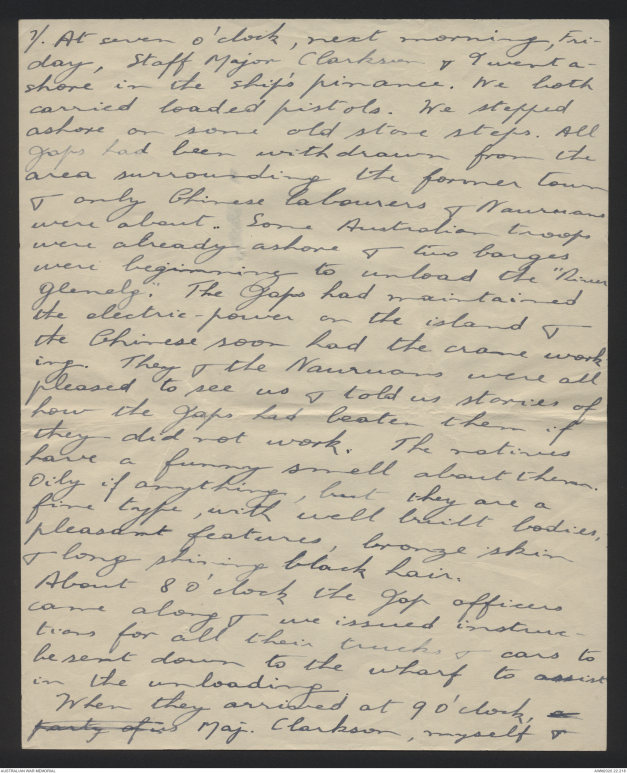 7/. At seven o'clock, next morning, Fri-
day, Staff Major Clarkson & I went a-
shore in the ship's pinnance. We both
carried loaded pistols. We stepped
ashore on some old stone steps. All
Japs had been withdrawn from the
area surrounding the former town
& only Chinese labourers & Nauruans
were about. Some Australian troops
were already ashore & two barges
were beginning to unload the "River
Glenelg". The Japs had maintained
the electric-power on the island &
the Chinese soon had the crane work-
ing. They & the Nauruans were all
pleased to see us & told us stories of
how the Japs had beaten them if
they did not work. The natives
have a funny smell about them.
Oily if anything, but they are a
fine type, with well built bodies,
pleasant features, bronze skin
& long shining black hair.
About 8 o'clock the Jap officers
came along & we issued instruc-
tions for all their trucks & cars to
be sent down to the wharf to assist
in the unloading.
When they arrived at 9 o'clock, a
party of us Maj. Clarkson, myself &
AUSTRALIAN WAR MEMORIAL